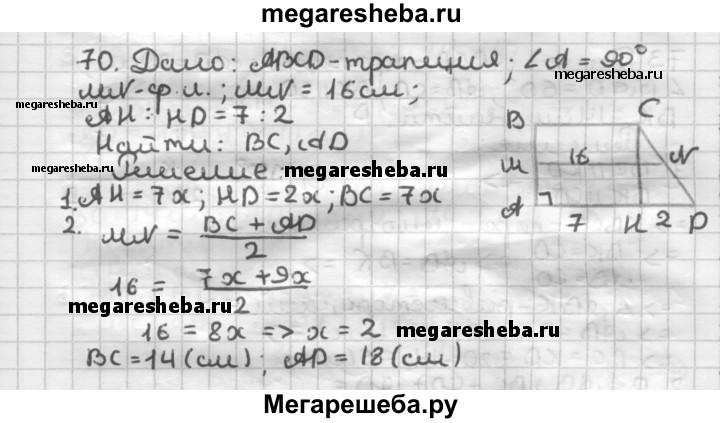 megaresheba.ru
70. Дано: ABCD-трапеция; ∠A = 90°
megaresheba.ru
MN-ср.л.; MN = 16см;
megaresheba.ru
AH : HD = 7 : 2
Найти: BC, AD
Решение:
megaresheba.ru
megaresheba.ru
1. AH = 7x; HD = 2x; BC = 7x
2. MN = BC + AD / 2
16 = 7x + 9x / 2
megaresheba.ru
16 = 8x => x = 2
megaresheba.ru
BC = 14(см); AD = 18(см)
B C
M 16 N
A 7 H 2 D
Мегарешеба.ру